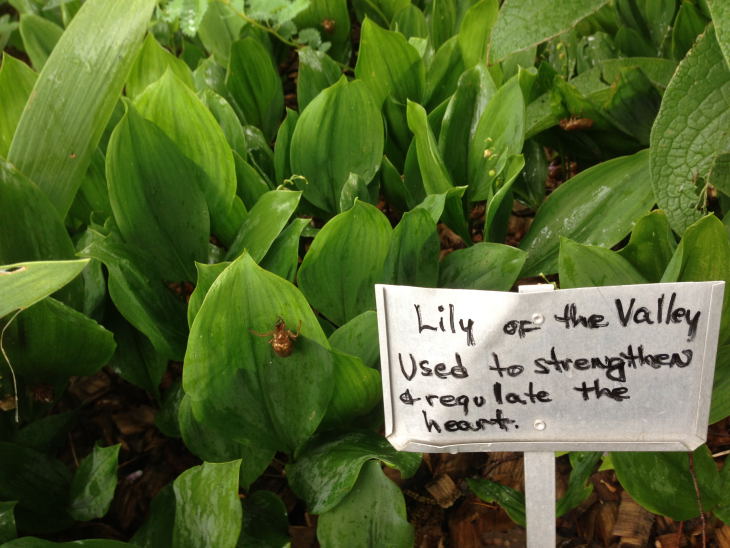 Lily of the Valley
Used to strengthen
& regulate the
heart.